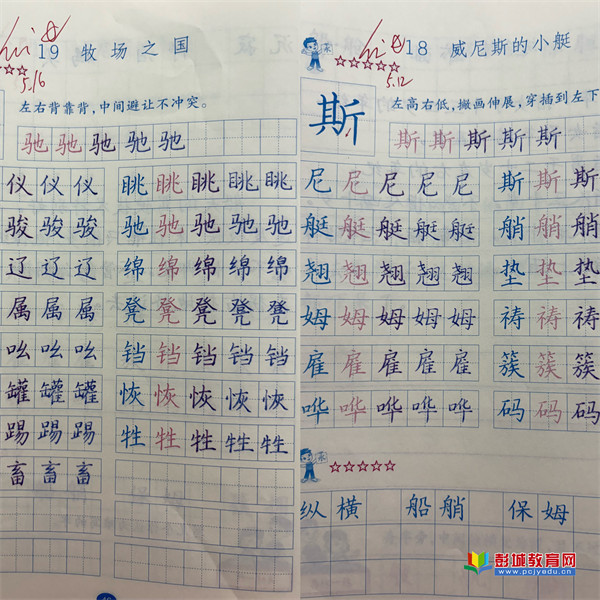 19 牧场之国
5.16
左右背靠背，中间避让不冲突。
驰驰驰驰驰
仪仪仪 眺眺眺眺眺
骏骏骏 驰驰驰驰驰
辽辽辽 绵绵绵绵绵
属属属 凳凳凳凳凳
吆吆吆 铛铛铛铛铛
罐罐罐 恢恢恢恢恢
踢踢踢 牲牲牲牲牲
畜畜畜
18 威尼斯的小艇
5.12
斯
左高右低，撇画伸展，穿插到左下
斯斯斯斯斯
尼尼尼尼尼 斯斯斯
艇艇艇艇艇 艄艄艄
翘翘翘翘翘 垫垫垫
姆姆姆姆姆 祷祷祷
雇雇雇雇雇 簇簇簇
哗哗哗哗哗 码码码
纵横 船艄 保姆
彭城教育网
www.pcjyedu.cn